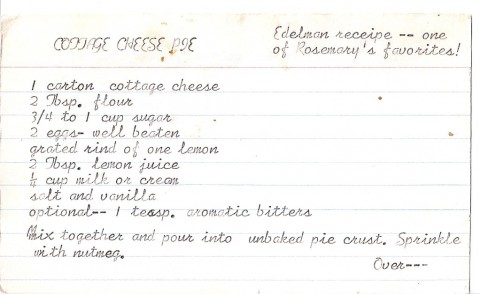 COTTAGE CHEESE PIE
Edelman receipe -- one
of Rosemary's favorites!
1 carton cottage cheese
2 Tbsp. flour
3/4 to 1 cup sugar
2 eggs- well beaten
grated rind of one lemon
2 Tbsp. lemon juice
½ cup milk or cream
salt and vanilla
optional-- 1 teasp. aromatic bitters
Mix together and pour into unbaked pie crust. Sprinkle
with nutmeg.
Over---